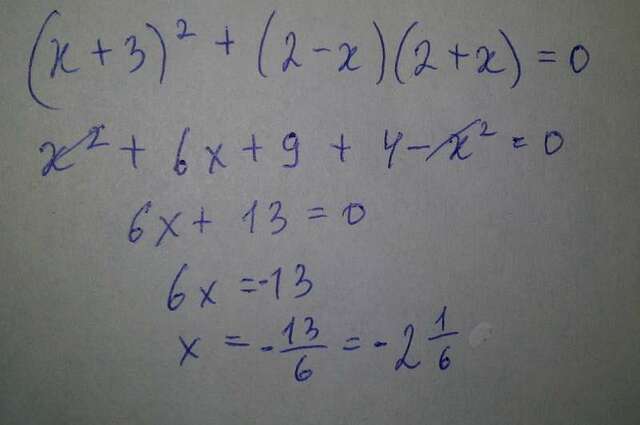 (x + 3)² + (2 - x)(2 + x) = 0
x² + 6x + 9 + 4 - x² = 0
6x + 13 = 0
6x = -13
x = -13/6 = -2 1/6